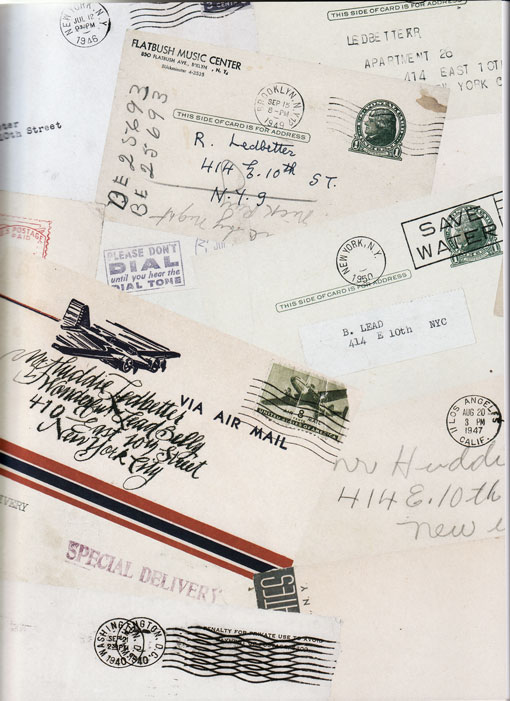 NEW YORK, N.Y.
JUL 12
1946
THIS SIDE OF CARD IS FOR ADDRESS
LEDBETTER
APARTMENT 2B
414 EAST 10TH
YORK C
10th Street
FLATBUSH MUSIC CENTER
N. Y.
BE 25693
BE 25693
BROOKLYN, N.Y.
SEP 15
8-PM
1949
THIS SIDE OF CARD IS FOR ADDRESS
1 1
R. Ledbetter
414 E. 10th ST.
N.Y. 9
PLEASE DON'T
DIAL
until you hear the
DIAL TONE
NEW YORK, N.Y.
1950
SAVE
WATER
THIS SIDE OF CARD IS FOR ADDRESS
B. LEAD
414 E 10th NYC
Mr Huddie Ledbetter
Wonderful Lead Belly
410 East 10th Street
New York City
VIA AIR MAIL
8
UNITED STATES OF AMERICA
LOS ANGELES
AUG 20
8 PM
1947
CALIF.
Mr Huddi
414 E. 10th
New
SPECIAL DELIVERY
WASHINGTON, D.C.
1940
PENALTY FOR PRIVATE USE TO AVOID